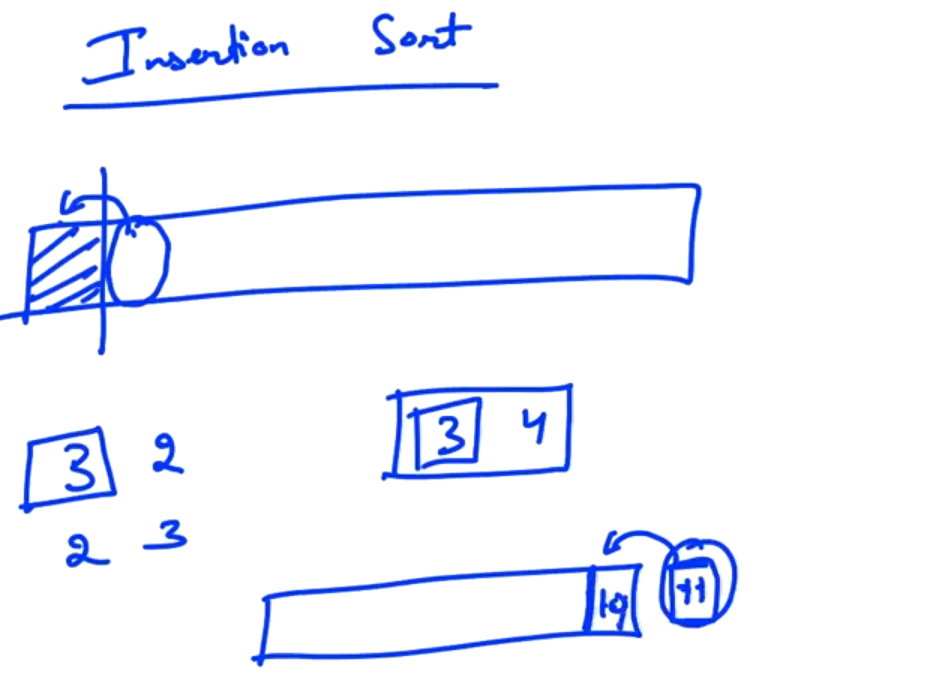 Insertion Sort
3 2
3 4
2 3
19 11